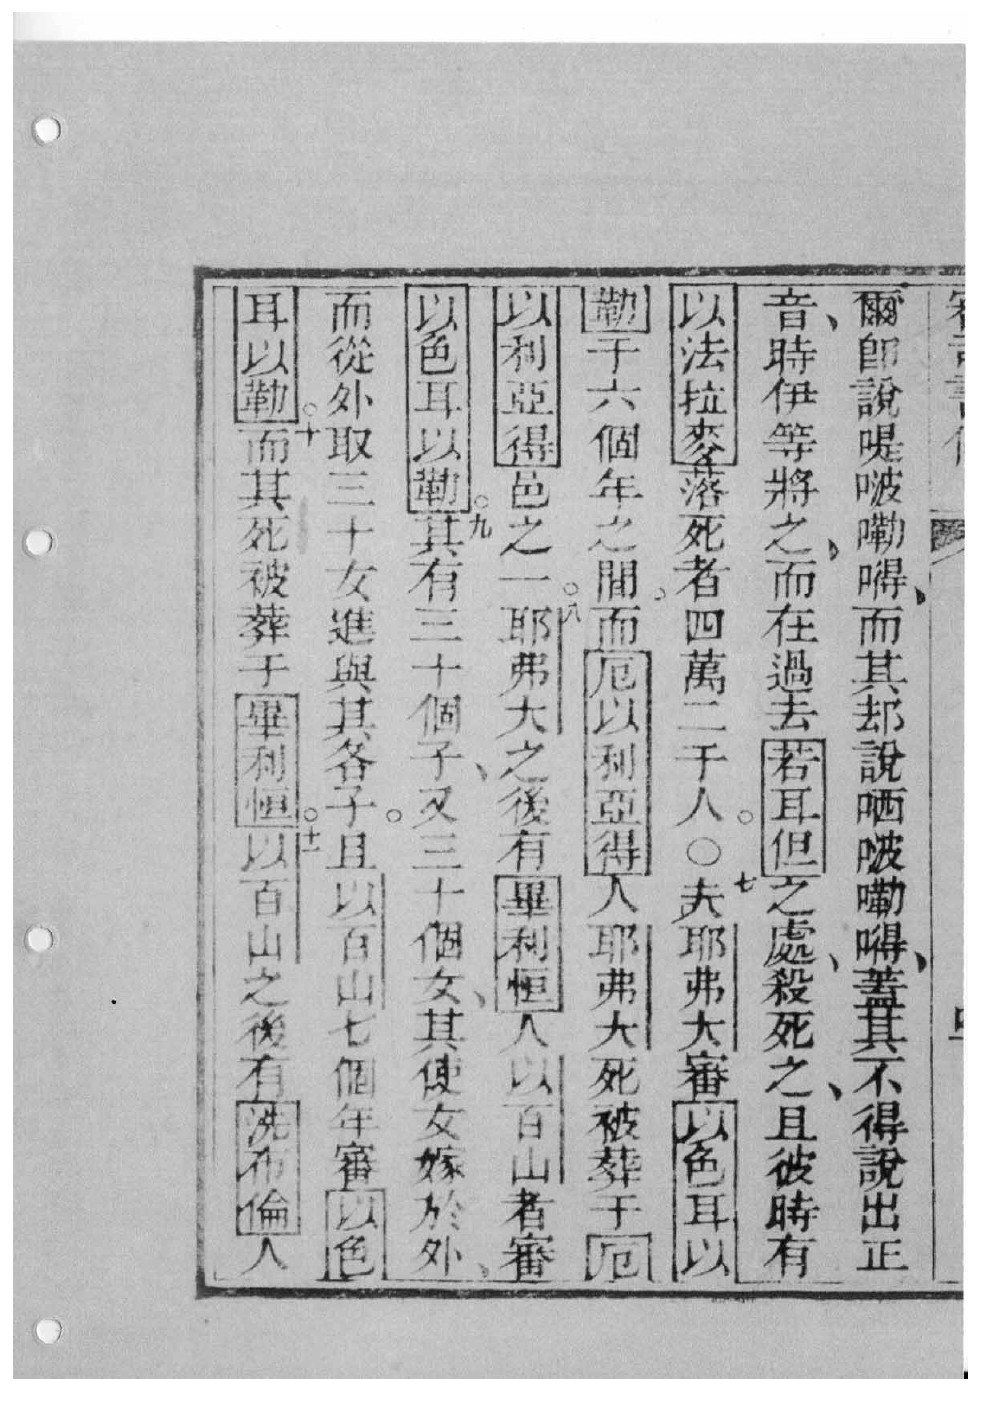 爾卽說㖷㗶嘞㖑、而其却說哂㗶嘞㖑、蓋其不得說出正
音、時伊等將之、而在過去若耳但之處、殺死之、且彼時有
以法拉麥落死者四萬二千人。○七夫耶弗大審以色耳以
勒于六個年之間、而厄以利亞得人耶弗大死被葬于厄
以利亞得邑之一○八耶弗大之後有畢利恒人以百山者審
以色耳以勒○九其有三十個子、又三十個女、其使女嫁於外、
而從外取三十女進與其各子。且以百山七個年審以色
耳以勒○十而其死被葬于畢利恒○十一以百山之後有洗布倫人